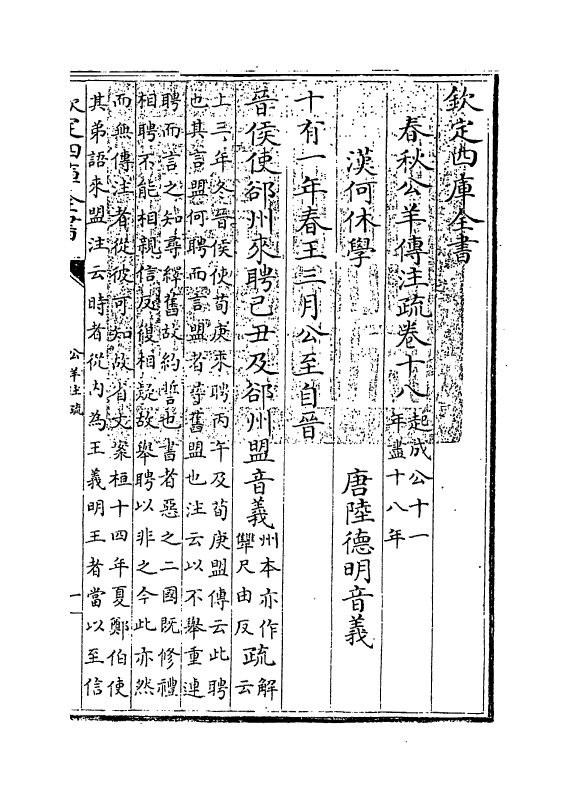 欽定四庫全書
春秋公羊傳注疏卷十八起成公十一
年盡十八年
漢何休學　唐陸德明音義
十有一年春王三月公至自晉
晉侯使郤州來聘己丑及郤州盟音義州本亦作
犨尺由反疏解云
上三年冬晉侯使荀庚來聘丙午及荀庚盟傳云此聘
也其言盟何聘而言盟者尋舊盟也注云以不舉重連
聘而言之知尋繹舊故約誓也書者惡之二國既修禮
相聘不能相親信反復相疑故舉聘以非之今此亦然
而無傳注者從彼可知故省文案桓十四年夏鄭伯使
其弟語來盟注云時者從內為王義明王者當以至信
欽定四庫全書
公羊注疏
一